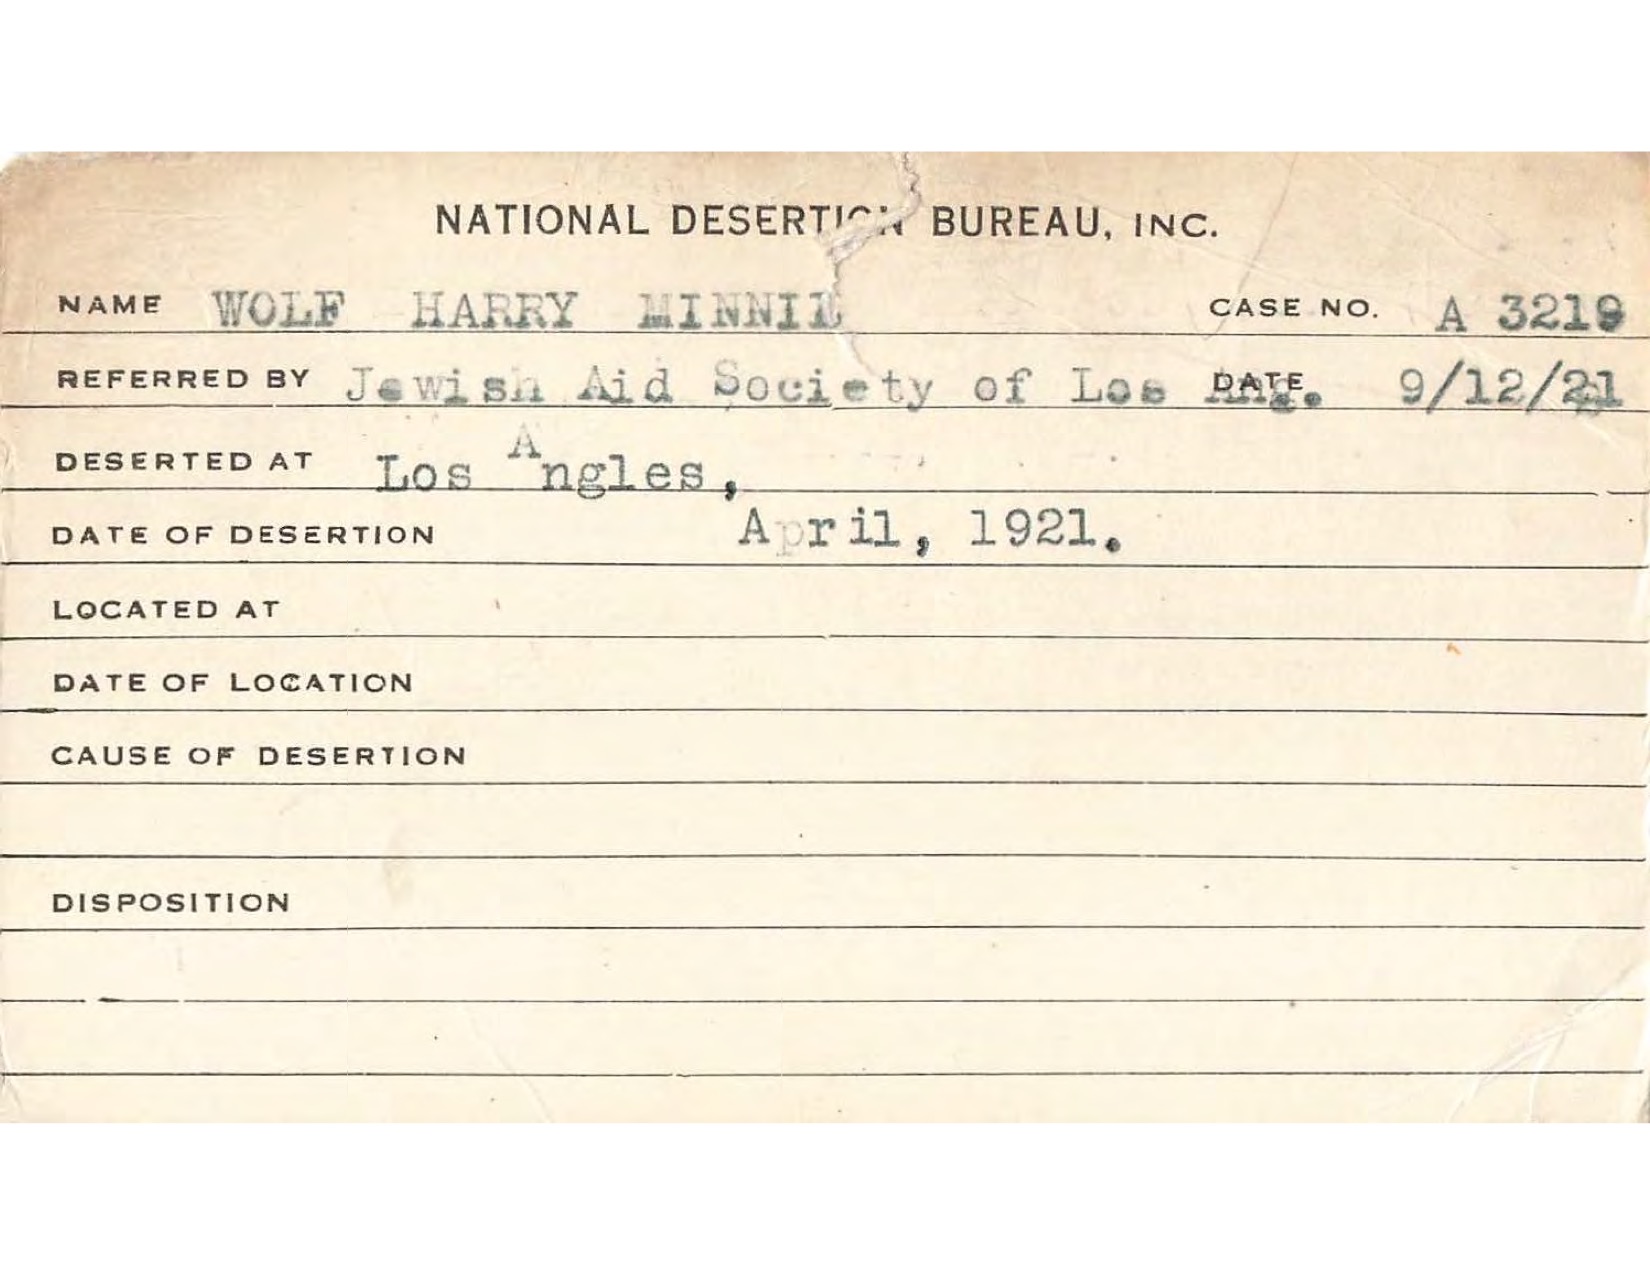 NATIONAL DESERTION BUREAU, INC.
NAME WOLF HARRY MINNIE CASE NO. A 3219
REFERRED BY Jewish Aid Society of Los Ang. DATE 9/12/21
DESERTED AT Los Angles,
DATE OF DESERTION April, 1921.
LOCATED AT
DATE OF LOCATION
CAUSE OF DESERTION
DISPOSITION